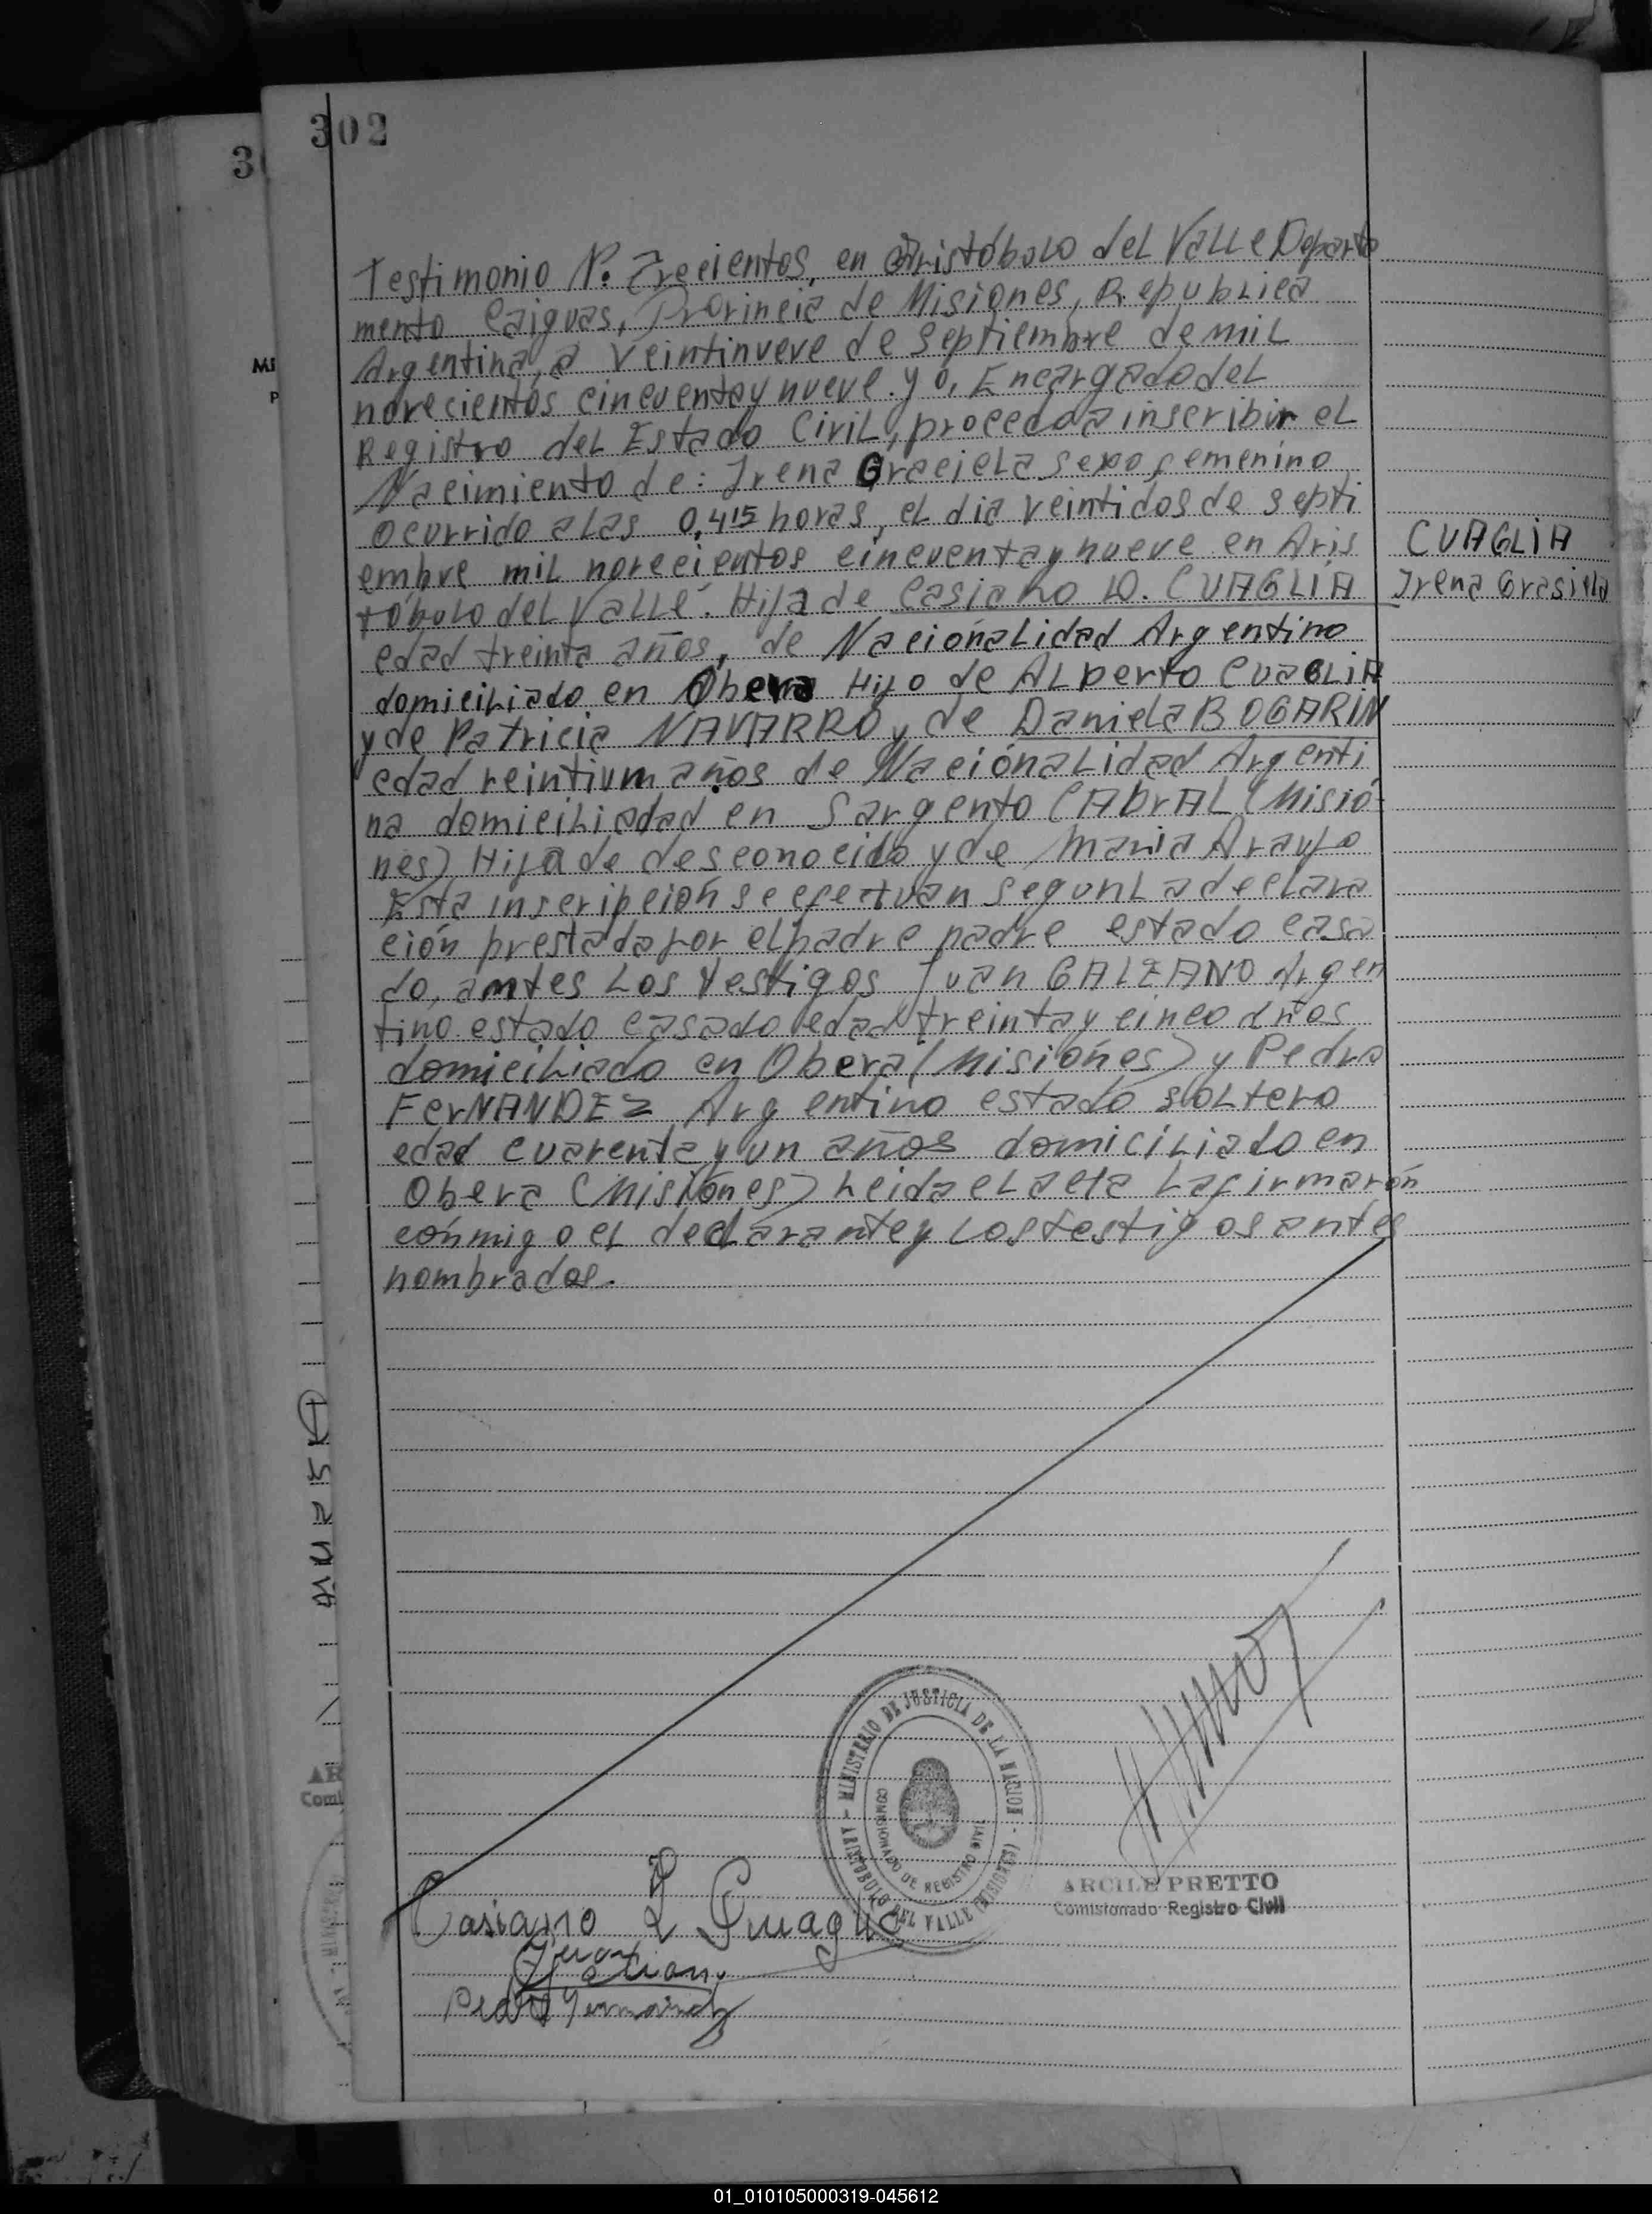 302
3
Mi
P
Testimonio N. Trecientos, en Aristóbolo del Valle Departa
mento Caiguas, Provincia de Misiones, Republica
Argentina, a veintinueve de septiembre de mil
novecientos cincuentaynueve. yó, Encargado del
Registro del Estado Civil, procedo a inscribir el
Nacimiento de: Irena Graciela sexo femenino
ocurrido a las 0,415 horas, el dia veintidos de septi
embre mil novecientos cincuentaynueve en Aris
tóbolo del Valle. Hija de Casiano D. CUAGLIA
edad treinta años, de Nacionalidad Argentino
domiciliado en Obera Hijo de ALberto CuaGLiA
y de Patricia NAVARRO y de Daniela BOGARIN
edad veintium años de Naciónalidad Argenti
na domiciliadad en Sargento CAbrAL (Misió
nes) Hija de desconocido y de Maria Araujo
Esta inscripción se efectuan segun La declara
ción prestada por el padre padre estado casa
do, amtes Los testigos Juan GALEANO Argen
tino estado casado edad treinta y cinco años
domiciliado en Obera (Misiónes) y Pedro
FerNANDEz Argentino estado soltero
edad cuarenta y un años domiciliado en
Obera (Misiónes) Leida el acta La firmarón
cónmigo el declarante y Los testigos antes
nombrados.
CUAGLiA
Irena Grasiela
MINISTERIO DE JUSTICIA DE LA NACION
COMISIONADO DE REGISTRO CIVIL
ARISTOBULO DEL VALLE (MISIONES)
ARCILE PRETTO
Comisionado Registro Civil
Casiano D Cuaglia
Juan
Pedro Fernandez
AR
Comi
01_010105000319-045612